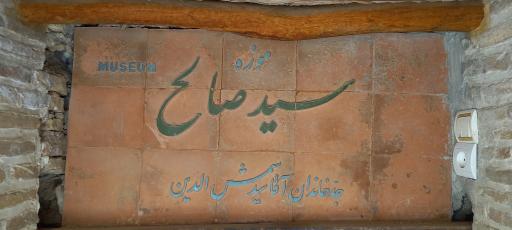 موزه
MUSEUM
سید صالح
جد خاندان آقا سید شمس الدین